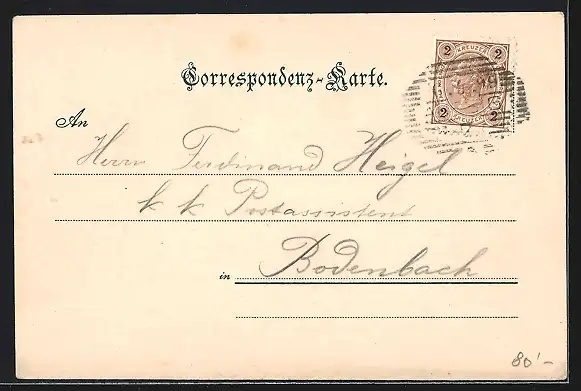 Correspondenz-Karte.
2 KREUZER 2
2 KREUZER 2
An
Herrn Ferdinand Heigel
k k Postassistent
in Bodenbach
80'-